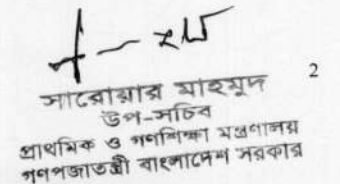 2
সারোয়ার মাহমুদ
উপ-সচিব
প্রাথমিক ও গণশিক্ষা মন্ত্রণালয়
গণপ্রজাতন্ত্রী বাংলাদেশ সরকার